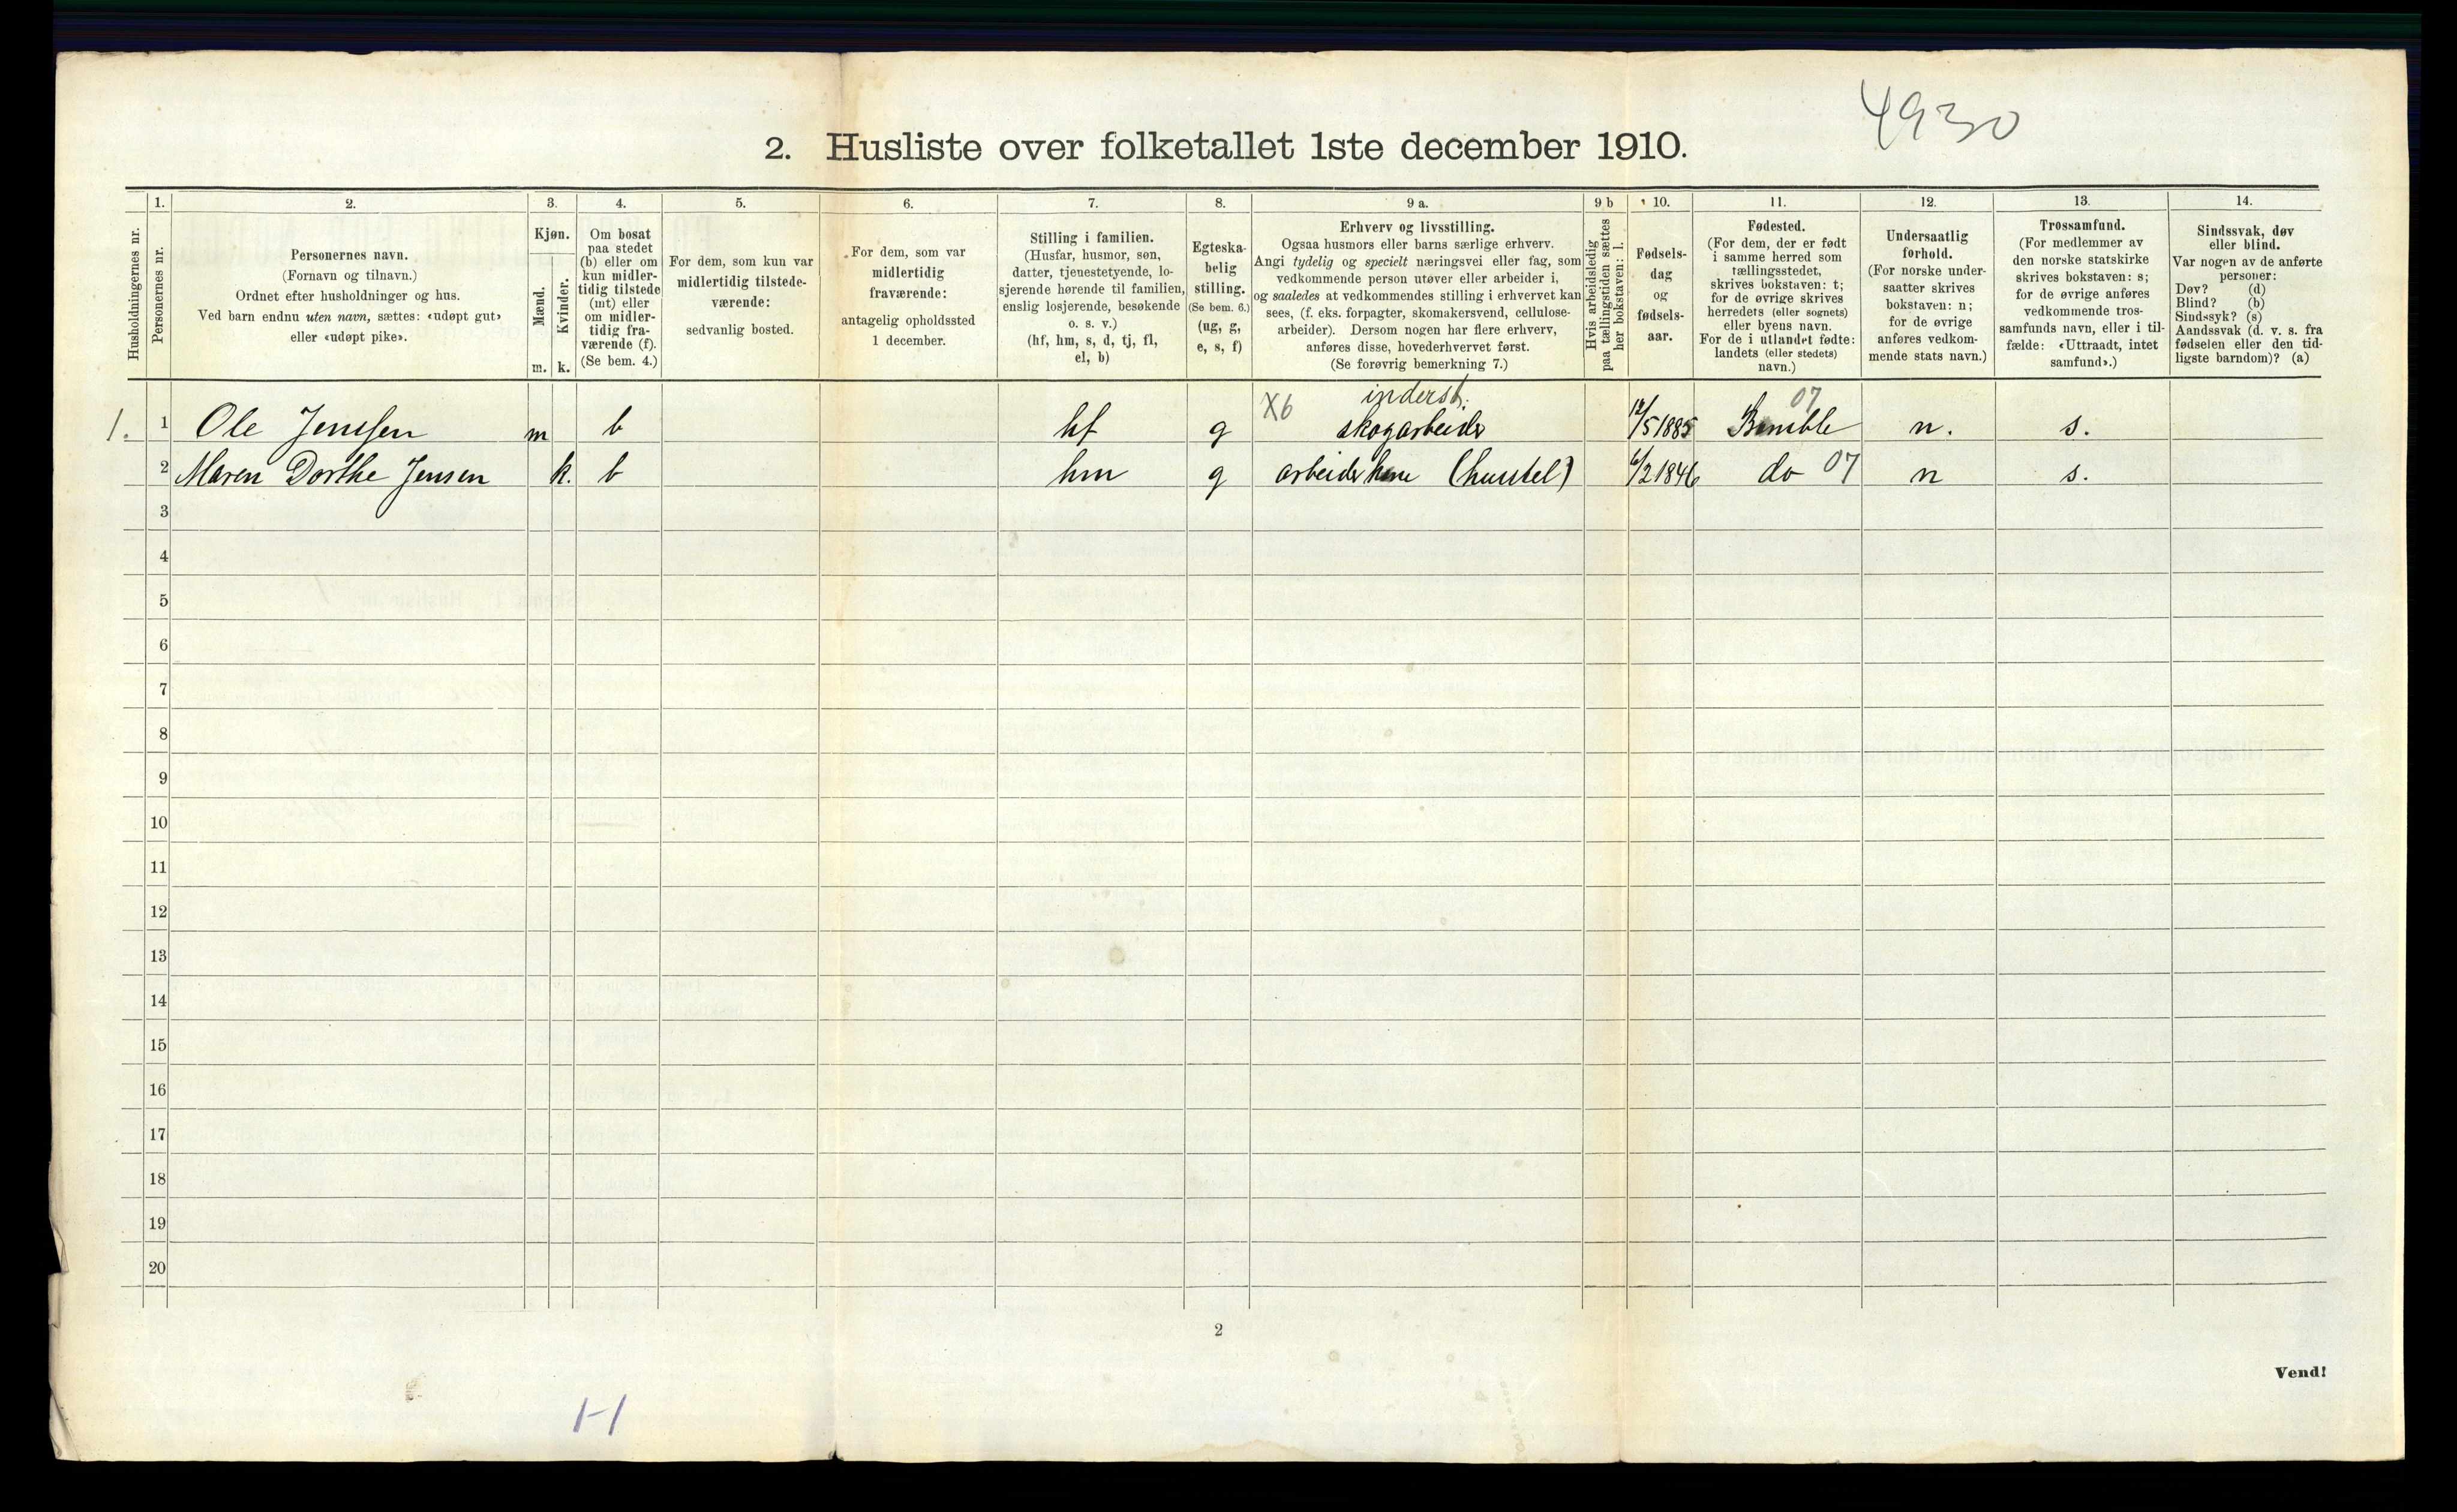 4930
2. Husliste over folketallet 1ste december 1910.
Husholdningernes nr.
1.
Personernes nr.
2.
Personernes navn.
(Fornavn og tilnavn.)
Ordnet efter husholdninger og hus.
Ved barn endnu uten navn, sættes: «udøpt gut»
eller «udøpt pike».
3.
Kjøn.
Mænd.
Kvinder.
m. k.
4.
Om bosat
paa stedet
(b) eller om
kun midler-
tidig tilstede
(mt) eller
om midler-
tidig fra-
værende (f).
(Se bem. 4.)
5.
For dem, som kun var
midlertidig tilstede-
værende:
sedvanlig bosted.
6.
For dem, som var
midlertidig
fraværende:
antagelig opholdssted
1 december.
7.
Stilling i familien.
(Husfar, husmor, søn,
datter, tjenestetyende, lo-
sjerende hørende til familien,
enslig losjerende, besøkende
o. s. v.)
(hf, hm, s, d, tj, fl,
el, b)
8.
Egteska-
belig
stilling.
(Se bem. 6.)
(ug, g,
e, s, f)
9 a.
Erhverv og livsstilling.
Ogsaa husmors eller barns særlige erhverv.
Angi tydelig og specielt næringsvei eller fag, som
vedkommende person utøver eller arbeider i,
og saaledes at vedkommendes stilling i erhvervet kan
sees, (f. eks. forpagter, skomakersvend, cellulose-
arbeider). Dersom nogen har flere erhverv,
anføres disse, hovederhvervet først.
(Se forøvrig bemerkning 7.)
9 b
Hvis arbeidsledig
paa tællingstiden sættes
her bokstaven: l.
10.
Fødsels-
dag
og
fødsels-
aar.
11.
Fødested.
(For dem, der er født
i samme herred som
tællingsstedet,
skrives bokstaven: t;
for de øvrige skrives
herredets (eller sognets)
eller byens navn.
For de i utlandet fødte:
landets (eller stedets)
navn.)
12.
Undersaatlig
forhold.
(For norske under-
saatter skrives
bokstaven: n;
for de øvrige
anføres vedkom-
mende stats navn.)
13.
Trossamfund.
(For medlemmer av
den norske statskirke
skrives bokstaven: s;
for de øvrige anføres
vedkommende tros-
samfunds navn, eller i til-
fælde: «Uttraadt, intet
samfund».)
14.
Sindssvak, døv
eller blind.
Var nogen av de anførte
personer:
Døv? (d)
Blind? (b)
Sindssyk? (s)
Aandssvak (d. v. s. fra
fødselen eller den tid-
ligste barndom)? (a)
X6 inderst. 07
1. 1 Ole Jenssen m b hf g skogarbeider /5 1885 Bamble n. s.
2 Maren Dorthe Jensen k. b hm g (husstel) 6/2 1846 do 07 n s.
3
4
5
6
7
8
9
10
11
12
13
14
15
16
17
18
19
20
2
Vend!
1-1